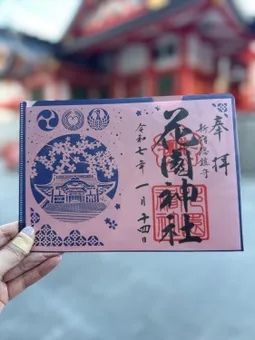 奉拝
新宿総鎮守
花園神社
令和七年
一月十四日